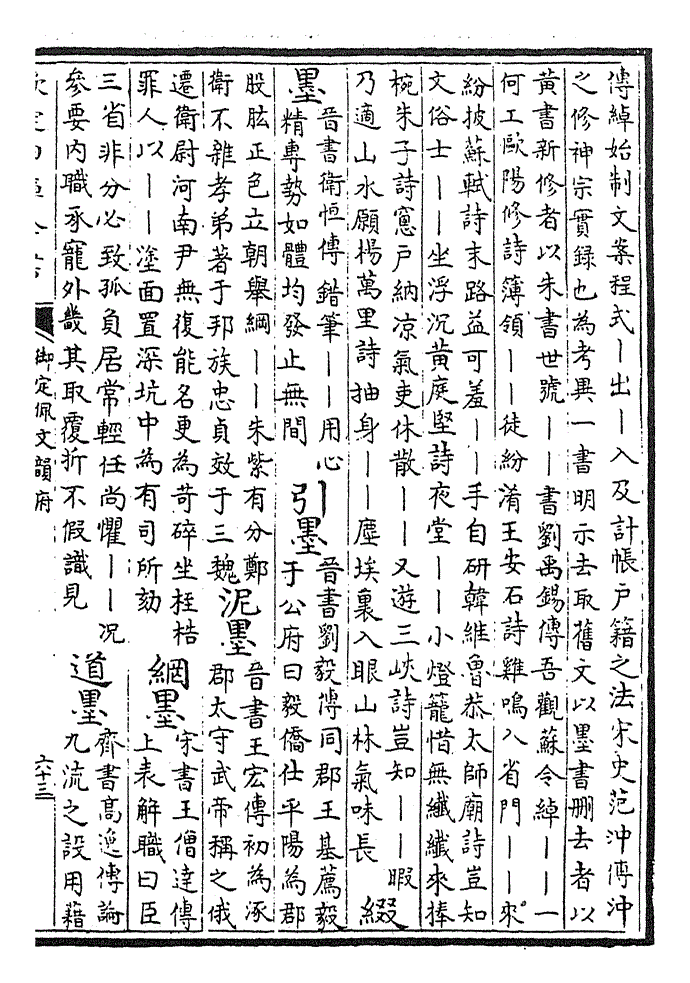 傳綽始制文案程式丨出丨入及計帳戶籍之法宋史范沖傳沖
之修神宗實録也為考異一書明示去取舊文以墨書刪去者以
黃書新修者以朱書世號丨丨書劉禹錫傳吾觀蘇令綽丨丨一
何工歐陽修詩簿領丨丨徒紛淆王安石詩雞鳴入省門丨丨來
紛披蘇軾詩末路益可羞丨丨手自研韓維魯恭太師廟詩豈知
文俗士丨丨坐浮沉黃庭堅詩夜堂丨丨小燈籠惜無纖纖來捧
椀朱子詩窻戸納凉氣吏休散丨丨又遊三峽詩豈知丨丨暇
乃適山水願楊萬里詩抽身丨丨塵埃裏入眼山林氣味長 綴
墨
晉書衛恒傳錯筆丨丨用心
精專勢如體均發止無間
引墨
晉書劉毅傳同郡王基薦毅
于公府曰毅僑仕平陽為郡
股肱正色立朝舉綱丨丨朱紫有分鄭
衛不雜孝弟著于邦族忠貞效于三魏
泥墨
晉書王宏傳初為涿
郡太守武帝稱之俄
遷衛尉河南尹無復能名更為苛碎坐桎梏
罪人以丨丨塗面置深坑中為有司所劾
綱墨
宋書王僧達傳
上表解職曰臣
三省非分必致孤負居常輕任尚懼丨丨况
參要内職承寵外畿其取覆折不假識見
道墨
齊書髙逸傳論
九流之設用藉
御定佩文韻府
六十三